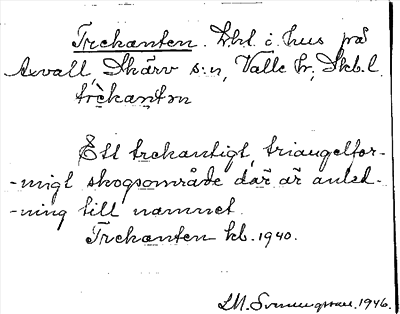 Trekanten. Lht. i. hus på
Axvall, Skärv s:n, Valle hr; Skb. l.
trèkantən
Ett trekantigt, triangelfor-
-migt skogsområde där är anled-
-ning till namnet.
Trekanten kb. 1940.
1946.